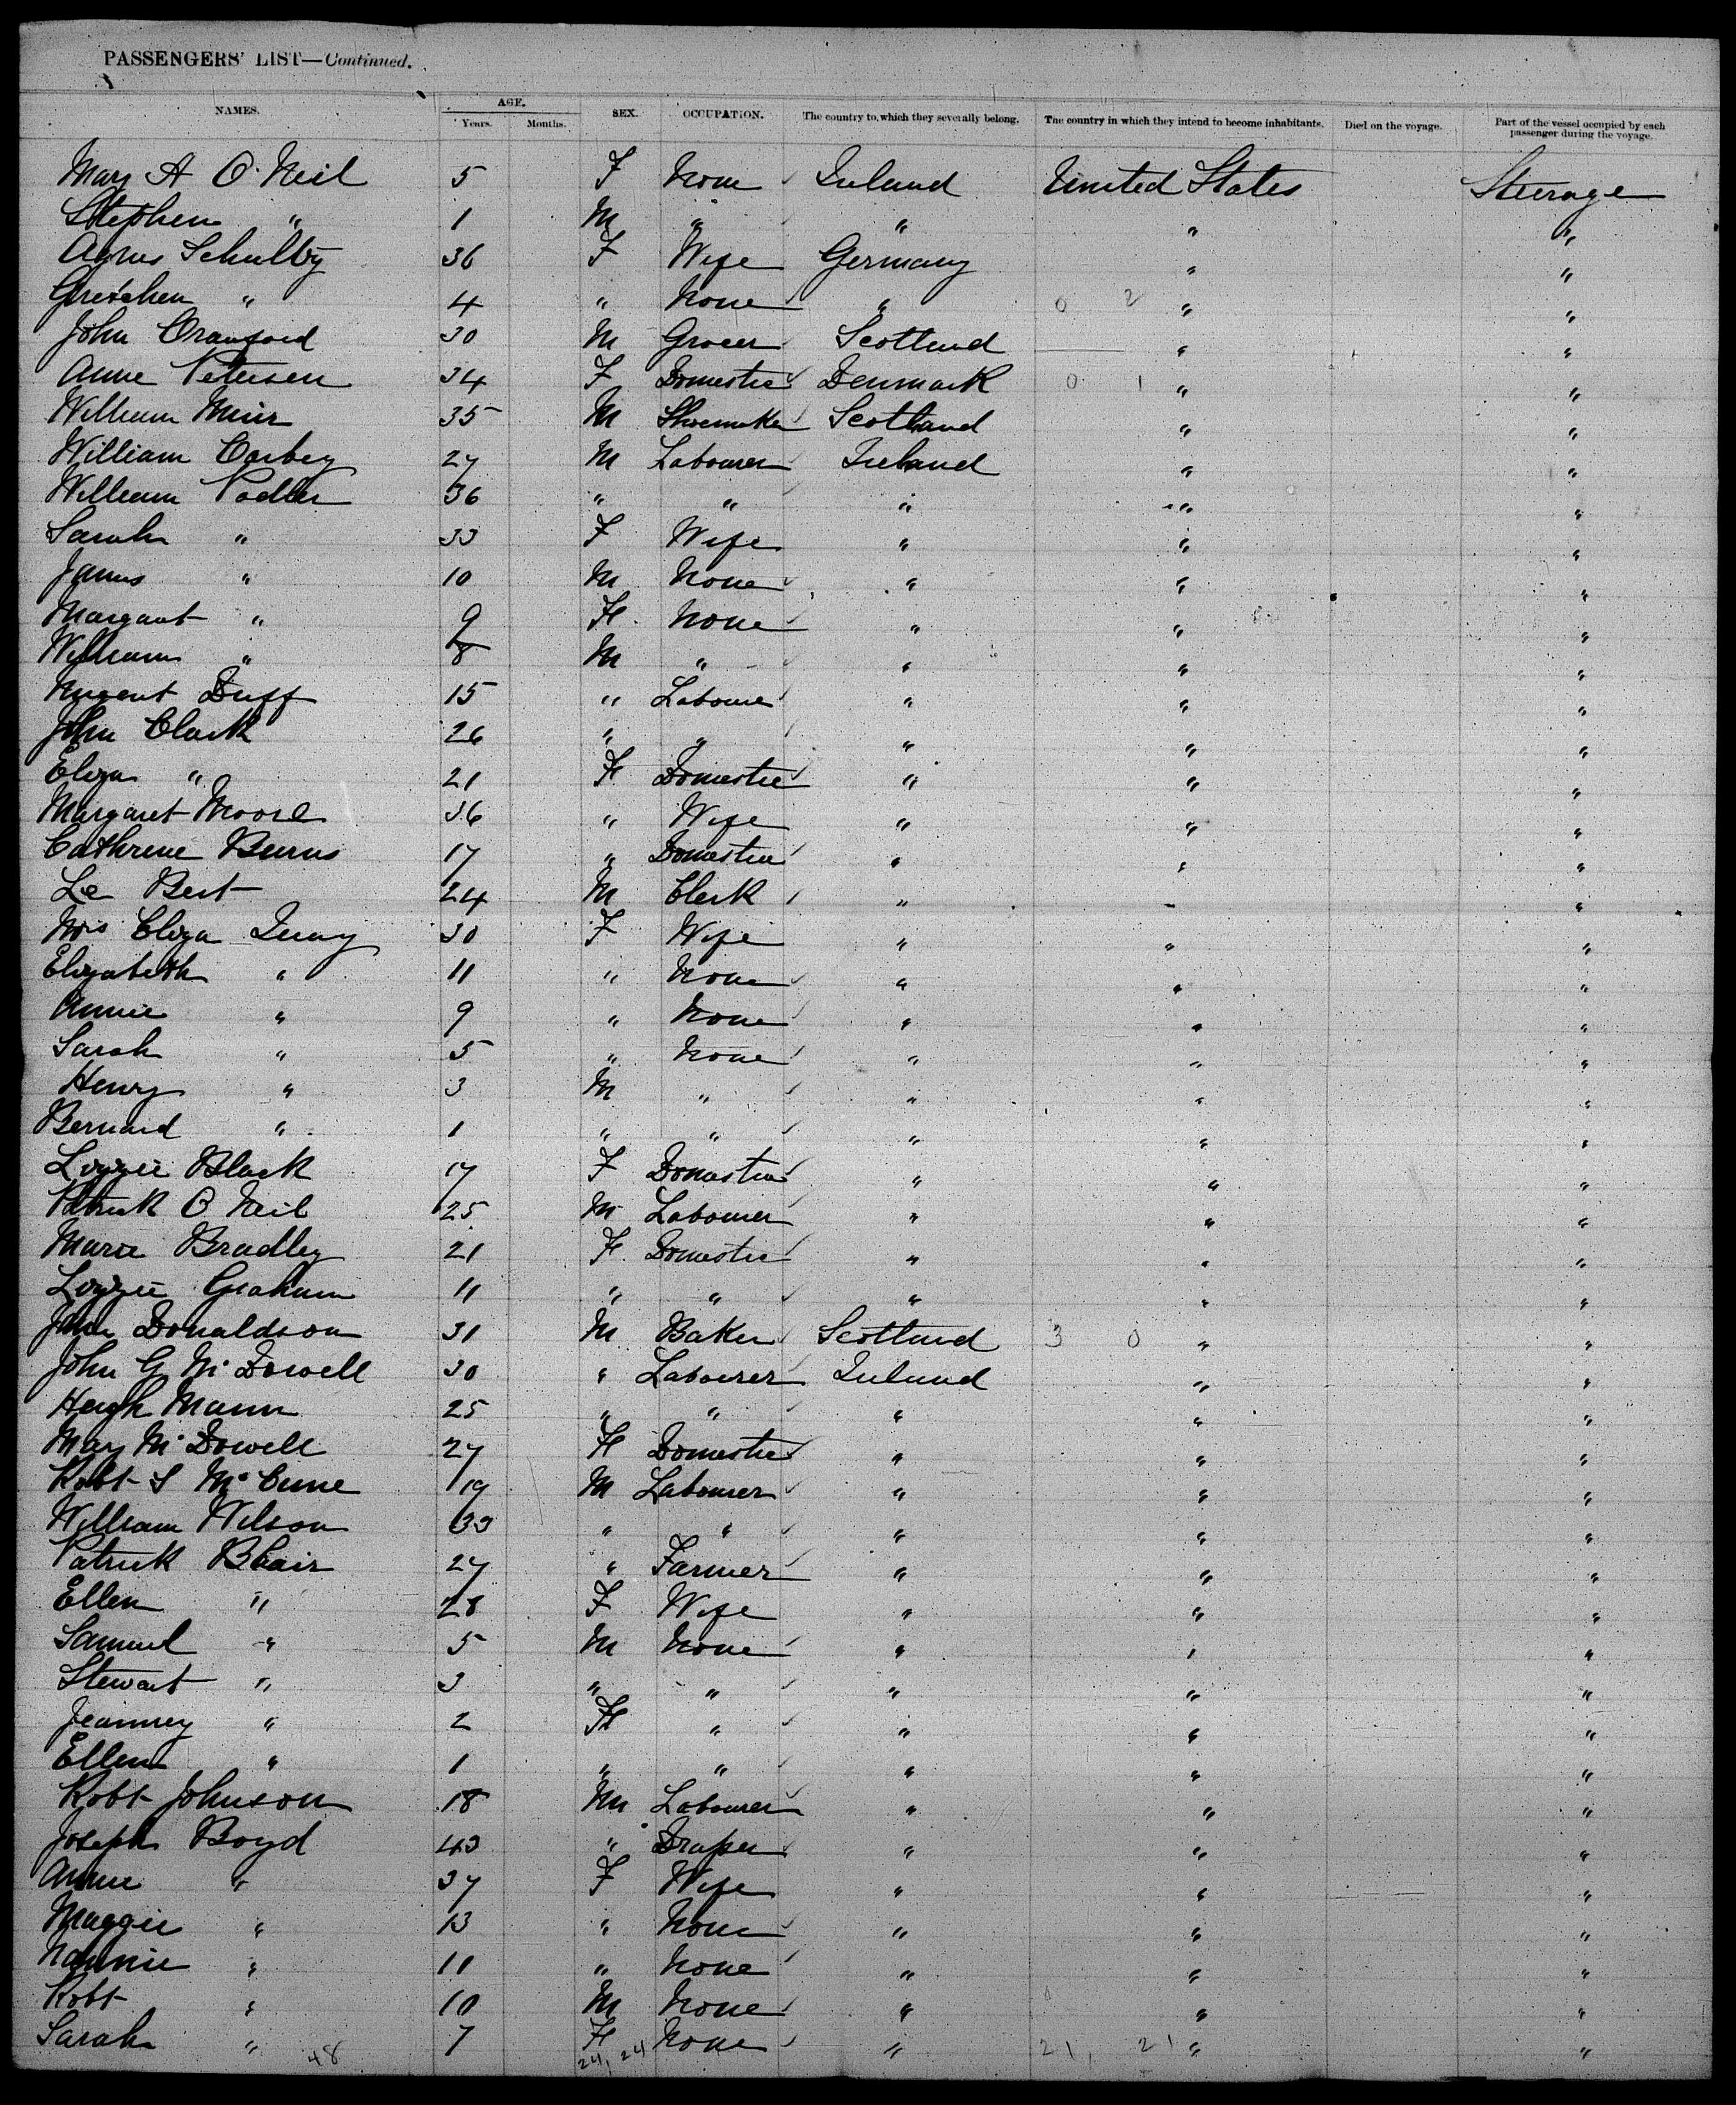 PASSENGERS' LIST—Continued.
NAMES. AGE. Years. Months. SEX. OCCUPATION. The country to which they severally belong. The country in which they intend to become inhabitants. Died on the voyage. Part of the vessel occupied by each passenger during the voyage.
Mary A O'Neil 5 F None Ireland United States Steerage
Stephen " 1 M " " " "
Agnes 36 F Wife Germany " "
Gretchen " 4 " None " 0 2 " "
John Crawford 30 M Grocer Scotland " "
Anne Petersen 34 F Domestic Denmark 0 1 " "
William Muir 35 M Shoemaker Scotland " "
William Corbey 27 M Labourer Ireland " "
William 36 " " " " "
Sarah " 33 F Wife " " "
James " 10 M None " " "
Margaret " 9 F None " " "
William " 8 M " " " "
Nugent Duff 15 " Labourer " " "
John Clark 26 " " " " "
Eliza " 21 F Domestic " " "
Margaret Moore 36 " Wife " " "
Cathrine Burns 17 " Domestic " " "
Le Bert 24 M Clerk " " "
Mrs Eliza 30 F Wife " " "
Elizabeth " 11 " None " " "
Annie " 9 " None " " "
Sarah " 5 " None " " "
Henry " 3 M " " " "
Bernard " 1 " " " " "
Lizzie Black 17 F Domestic " " "
Patrick O Neil 25 M Labourer " " "
Maria Bradley 21 F Domestic " " "
Lizzie Graham 11 " " " " "
John Donaldson 31 M Baker Scotland 3 0 " "
John G McDowell 30 " Labourer Ireland " "
Hugh Mann 25 " " " " "
Mary McDowell 27 F Domestic " " "
Robt S McCune 19 M Labourer " " "
William Wilson 33 " " " " "
Patrick Blair 27 " Farmer " " "
Ellen " 28 F Wife " " "
Samuel " 5 M None " " "
Stewart " 3 " " " " "
Jeanney " 2 F " " " "
Ellen " 1 " " " " "
Robt Johnson 18 M Labourer " " "
Joseph Boyd 43 " Draper " " "
Annie " 37 F Wife " " "
Maggie " 13 " None " " "
Nannie " 11 " None " " "
Robt " 10 M None " " "
Sarah " 7 F None " 21, 21 " "
48 24, 24